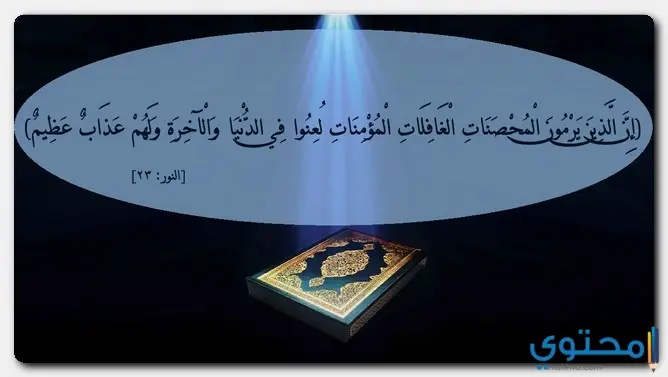 (إِنَّ الَّذِينَ يَرْمُونَ الْمُحْصَنَاتِ الْغَافِلَاتِ الْمُؤْمِنَاتِ لُعِنُوا فِي الدُّنْيَا وَالْآخِرَةِ وَلَهُمْ عَذَابٌ عَظِيمٌ)
[النور: ٢٣]
محتوى